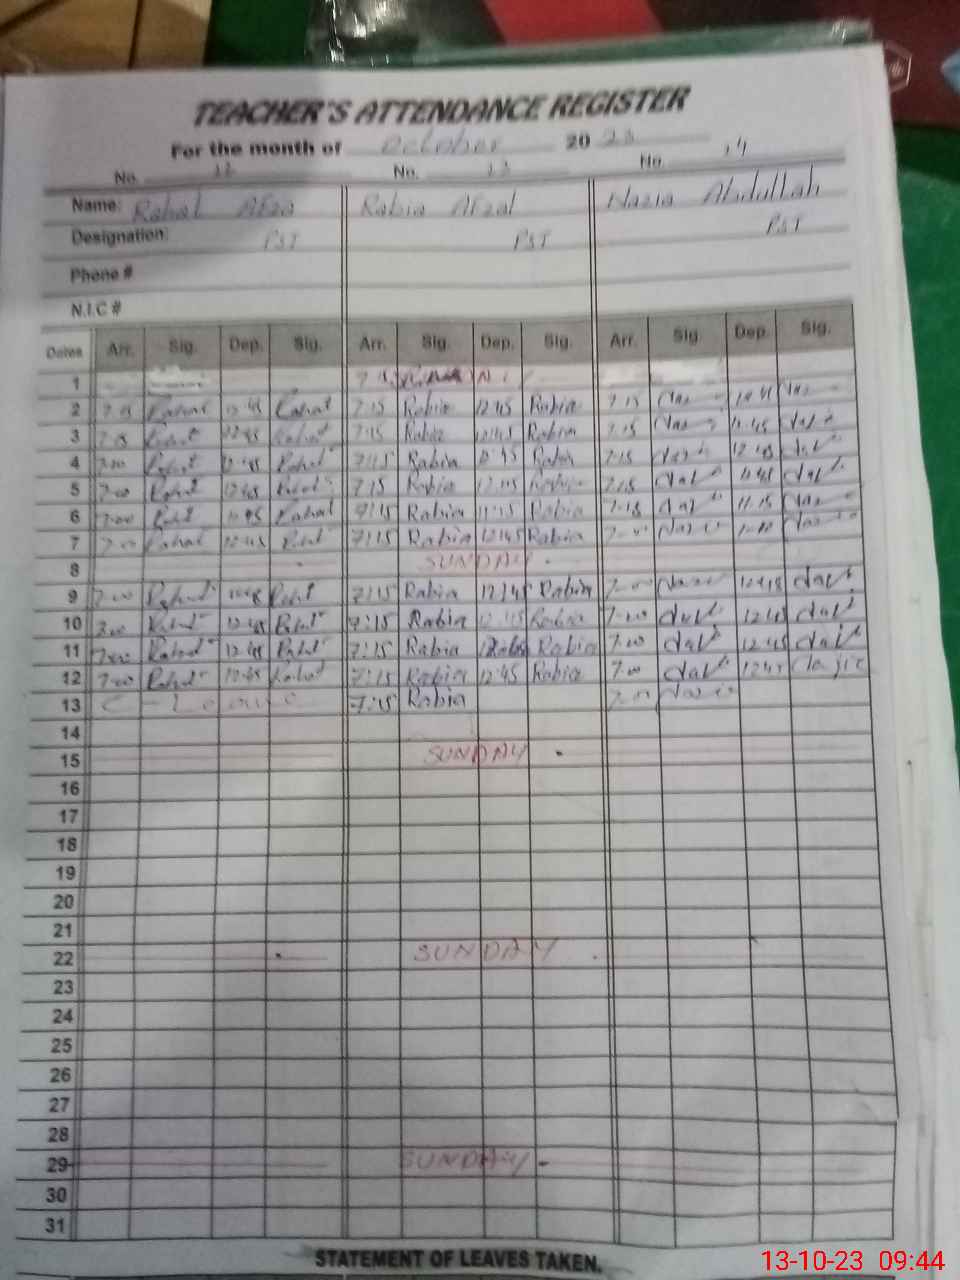 TEACHER'S ATTENDANCE REGISTER
For the month of October 20 23
No. 12 No. 13 No. 14
Name: Rahat Afza Rabia Afzal Nazia Abdullah
Designation: PST PST PST
Phone #
N.I.C #
Dates Arr. Sig. Dep. Sig. Arr. Sig. Dep. Sig. Arr. Sig. Dep. Sig.
1
2 7:15 Rahat 12:45 Rahat 7:15 Rabia 12:45 Rabia 7:15
3 Rahat 12:45 Rahat 7:15 Rabia 12:45 Rabia 7:15
4 7:00 Rahat 12:45 Rahat 7:15 Rabia 12:45 Rabia 7:15 12:45
5 7:00 Rahat 12:45 Rahat 7:15 Rabia 12:45 Rabia 7:15
6 7:00 Rahat Rahat 7:15 Rabia 11:15 Rabia 7:15 11:15
7 7:00 Rahat 12:45 Rahat 7:15 Rabia 12:45 Rabia 7:00
8 SUNDAY
9 7:00 Rahat Rahat 7:15 Rabia 12:45 Rabia 7:00 12:45
10 7:00 Rahat 12:45 Rahat 7:15 Rabia 12:45 Rabia 7:00 12:45
11 7:00 Rahat 12:45 Rahat 7:15 Rabia Rabia 7:00 12:45
12 7:00 Rahat 12:45 Rahat 7:15 Rabia 12:45 Rabia 7:00 12:45
13 C - Leave 7:15 Rabia 7:00 Nazia
14
15 SUNDAY
16
17
18
19
20
21
22 SUNDAY
23
24
25
26
27
28
29 SUNDAY
30
31
STATEMENT OF LEAVES TAKEN.
13-10-23 09:44